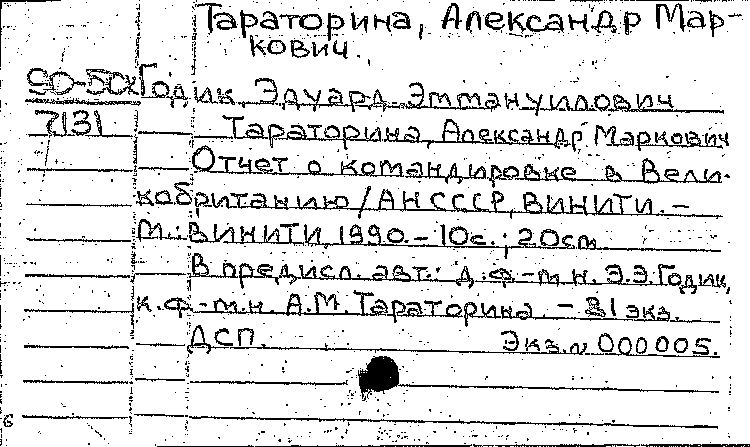 Тараторина, Александр Мар-
кович.
90-50х Годик, Эдуард Эммануилович
7131 Тараторина, Александр Маркович
Отчет о командировке в Вели-
кобританию/АН СССР, ВИНИТИ. –
М.: ВИНИТИ, 1990. – 10с.; 20см.
В предисл. авт.: д.ф.-м.н. Э.Э.Годик,
к.ф.-м.н. А.М.Тараторина. – 31 экз.
ДСП. Экз.№ 000005.
6